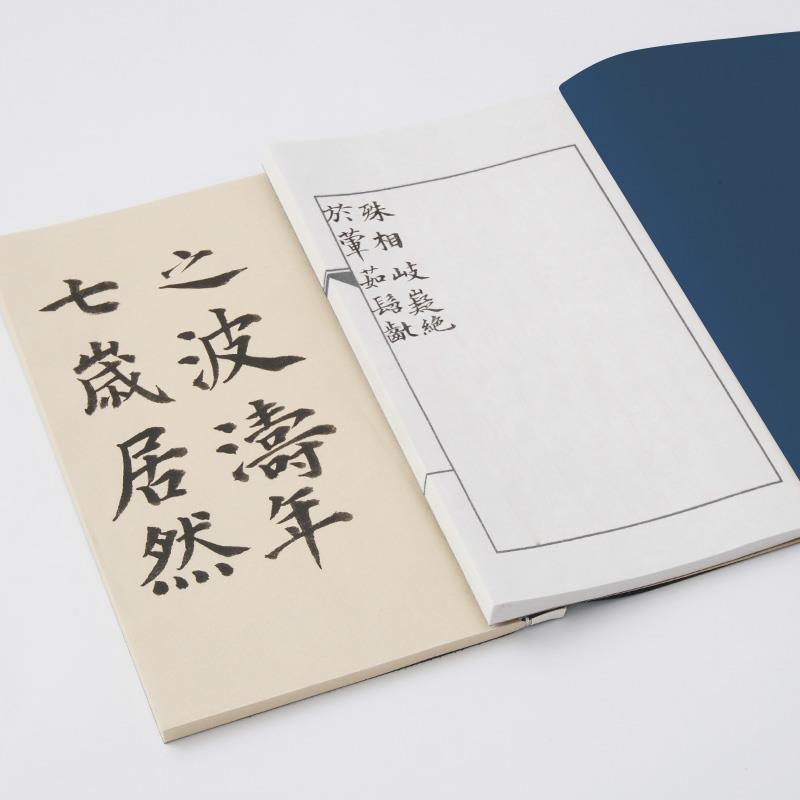 殊相岐嶷絶
於葷茹髫齔
之波濤年
七歲居然